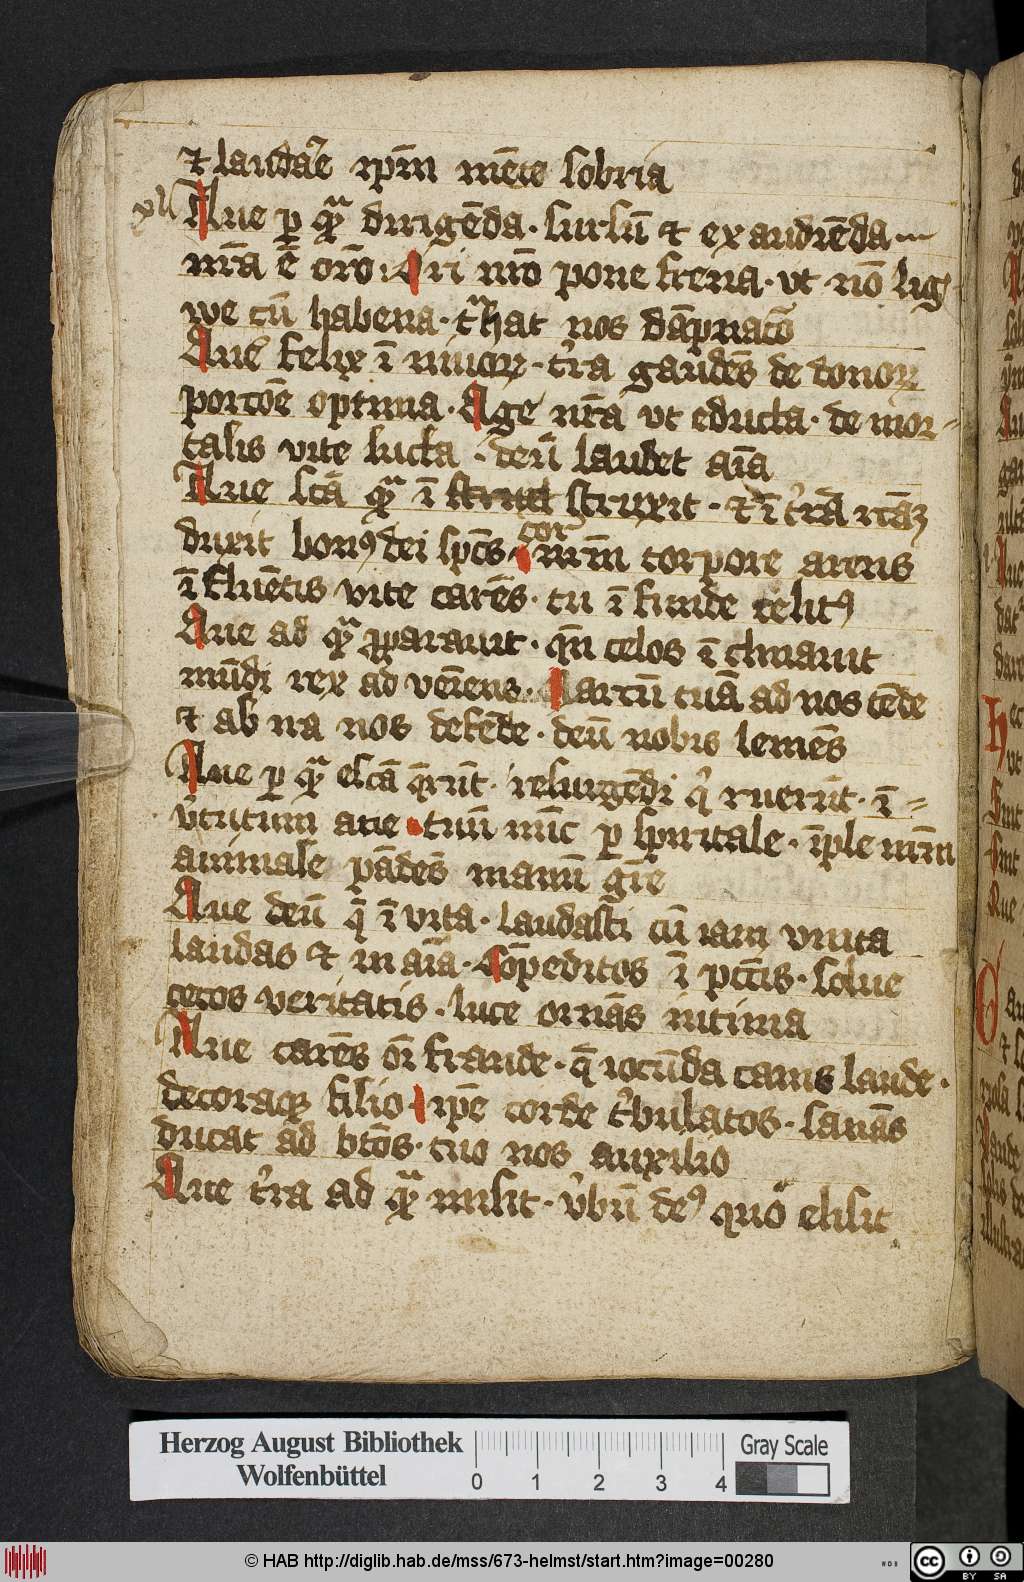 ⁊ laudar̄e xp̄m mēte sobria
xl
Aue ꝑ quā dirigēda · sursū ⁊ exaudiēda
nr̄a ē orō · Ori nr̄o pone frena · vt nō lig
we cū habena · trahat nos dāpnatō
Aue felix ī minorꝝ · tr̄ra gaudēs de bonorꝝ
portōē optima · Age nr̄a vt educta · de mor-
talis vite lucta · deū laudet aīa
Aue scā quā ī struxit · ⁊ ī tr̄rā
duxit bonꝰ dei sp̄c̄s · cor nr̄m torpore arens
īfluētis vite carēs · tu īfunde celitꝰ
Aue ad quā p̄parauit · qn̄ celos īcliauit
mūdi rex ad veīens · Partū tuā ad nos tēde
⁊ ab ira nos defēde · deū nobis leniēs
Aue ꝑ quā escā q̄rūt · resurgēdi q̄ ruerūt · ī
vtitum aue · tuū nūc ꝑ spūitale · īple nr̄m
animale pādēs mānū gr̄e
Aue deū q̄ ī vita · laudasti cū iam vnita
laudas ⁊ in aīa · Cōpeditos ī pcc̄is · solue
cecos veritatis · luce ornās intima
Aue carēs oī fraude · q̄ iocūda canis laude ·
decoraqꝫ filio · ip̄e corde tr̄bulatos · sanās
ducat ad bt̄os · tuo nos auxilio
Aue tr̄ra ad quā misit · v̄bū deꝰ quo elisit
Herzog August Bibliothek
Wolfenbüttel
0 1 2 3 4
Gray Scale
© HAB http://diglib.hab.de/mss/673-helmst/start.htm?image=00280
cc BY SA